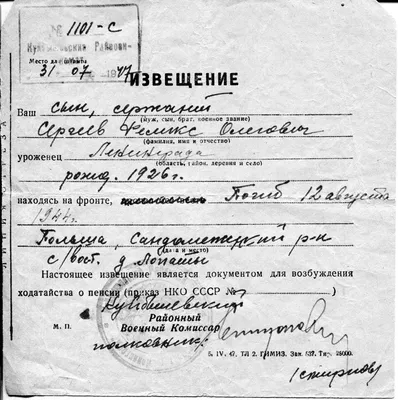 1101-с
Куйбышевский Райвоен-
Место для штампа
31 07 1947
ИЗВЕЩЕНИЕ
Ваш сын, сержант
(муж, сын, брат, военное звание)
Сергеев Феликс Олегович
(фамилия, имя и отчество)
уроженец Ленинграда
(область, район, деревня и село)
рожд. 1926 г.
находясь на фронте, Погиб 12 августа
1944 г.
Польша, Сандомежский р-н
(дата и место)
с/вост. д. Лопаты
Настоящее извещение является документом для возбуждения
ходатайства о пенсии (приказ НКО СССР № )
Куйбышевский
Районный
М. П. Военный Комиссар
полковник
5. IV. 47. ТЛ 2. ГИМИЗ. Зак. 537. Тир. 25000.
(Смирнов)